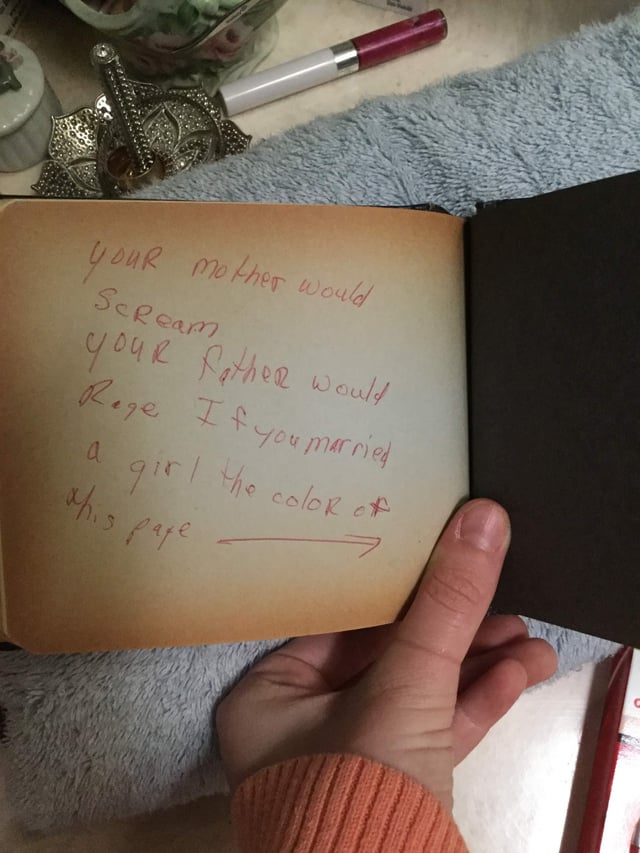 YOUR mother would
ScReam
YOUR fatheR would
Rage If you married
a girl the coloR of
this page